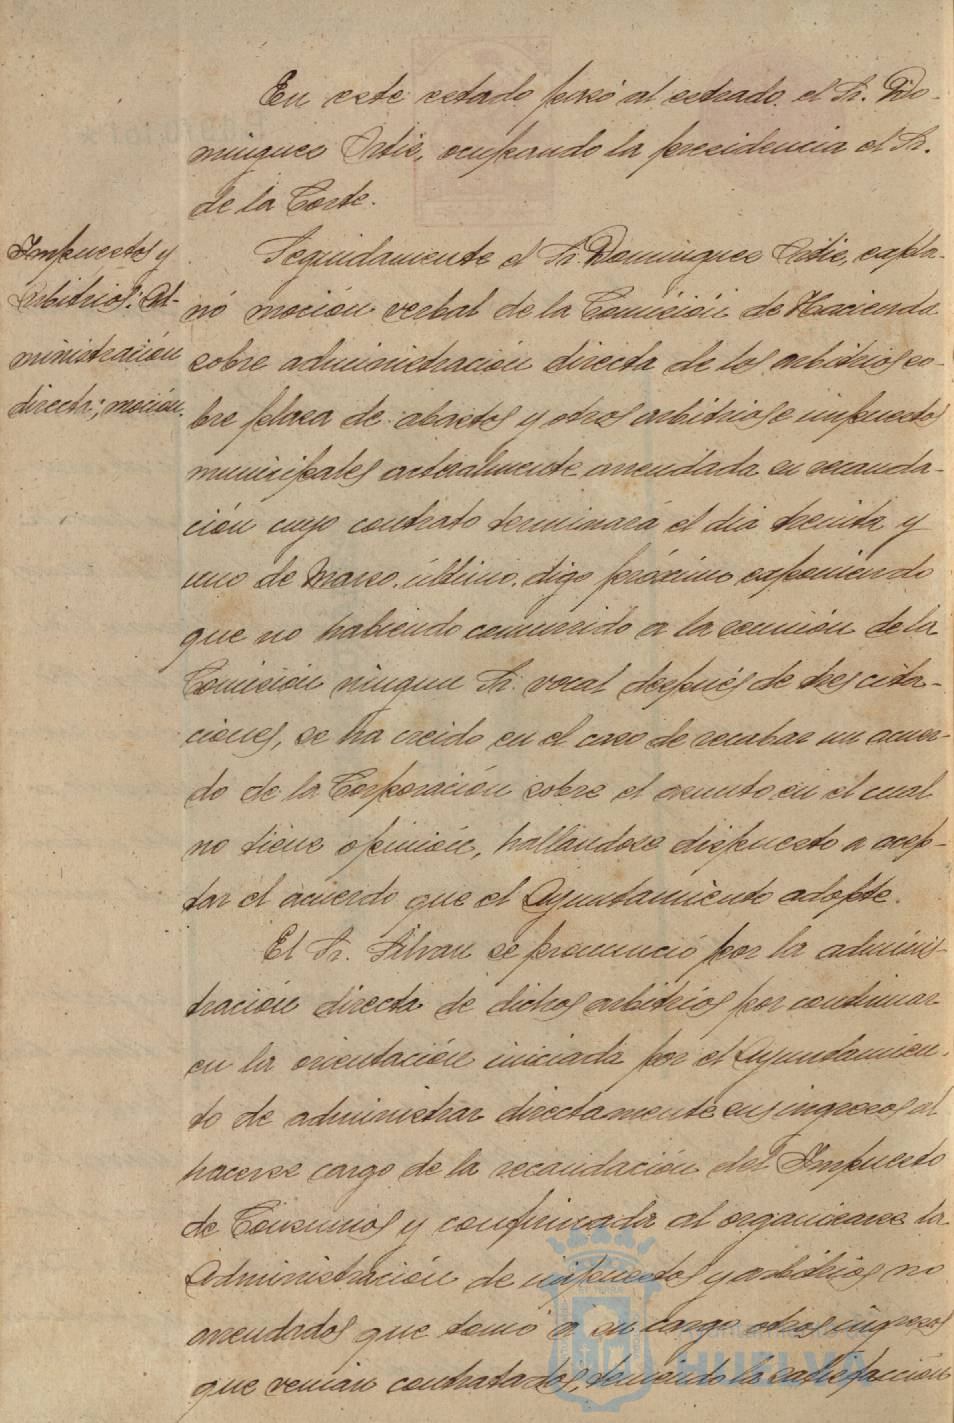 En este estado pasó al estrado el Sr. Do-
minguez Ortiz, ocupando la presidencia el Sr.
de la Corte.
Impuestos y
arbitrios: Ad-
ministración
directa; moción.
Seguidamente el Sr. Dominguez Ortiz, expla-
nó moción verbal de la Comisión de Hacienda
sobre administración directa de los arbitrios so-
bre plaza de abastos y otros arbitrios e impuestos
municipales actualmente arrendada su recauda-
ción cuyo contrato terminará el dia treinta y
uno de Marzo último, digo próximo exponiendo
que no habiendo concurrido a la reunión de la
Comisión ningun Sr. vocal después de tres cita-
ciones, se ha creido en el caso de recabar un acuer-
do de la Corporación sobre el asunto en el cual
no tiene opinión, hallandose dispuesto a acep-
tar el acuerdo que el Ayuntamiento adopte.
El Sr. Silvan se pronunció por la adminis-
tración directa de dichos arbitrios por continuar
en la orientación iniciada por el Ayuntamien-
to de administrar directamente sus ingresos al
hacerse cargo de la recaudación del Impuesto
de Consumos y confirmada al organizarse la
Administración de impuestos y arbitrios no
arrendados que tomó a su cargo otros ingresos
que venian contratados, teniendo la satisfacción
HUELVA